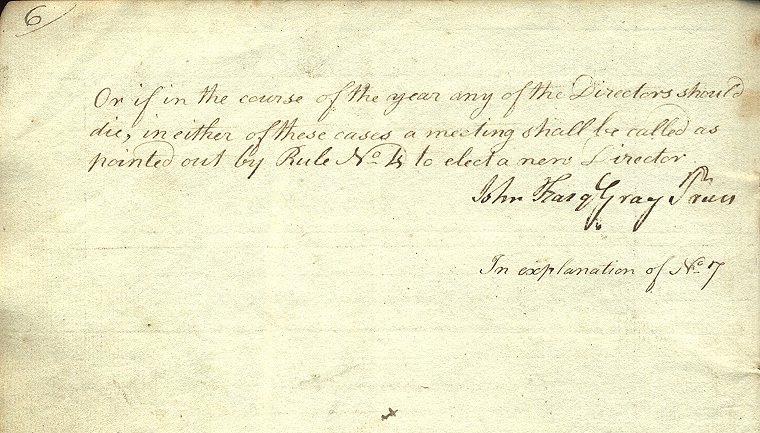 6
Or if in the course of the year any of the Directors should
die, in either of these cases a meeting shall be called as
pointed out by Rule No. 4 to elect a new Director
John Farq Gray
In explanation of No. 7